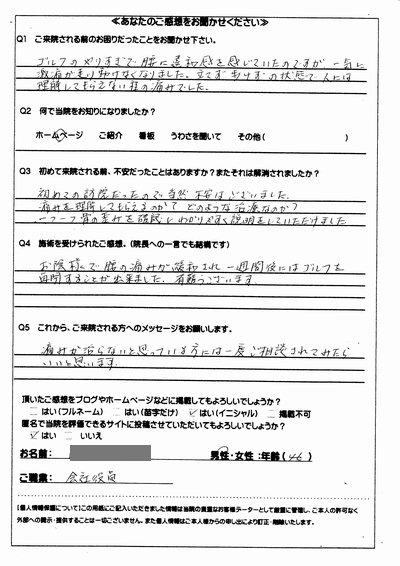 ≪あなたのご感想をお聞かせください≫
Q1 ご来院される前のお困りだったことをお聞かせ下さい。
ゴルフのやりすぎで腰に違和感を感じていたのですが一気に
激痛が走り動けなくなりました。立てず歩けずの状態で人には
理解してもらえない程の痛みでした。
Q2 何で当院をお知りになりましたか？
ホームページ ご紹介 看板 うわさを聞いて その他( )
Q3 初めて来院される前、不安だったことはありますか？またそれは解消されましたか？
初めての訪院だったので当然不安はございました。
痛みを理解してもらえるのか？どのような治療なのか？
一つ一つ骨の歪みを確認しわかりやすく説明をしていただけました
Q4 施術を受けられたご感想。(院長への一言でも結構です)
お陰様で腰の痛みが緩和され一週間後にはゴルフを
再開することが出来ました。有難うございます
Q5 これから、ご来院される方へのメッセージをお願いします。
痛みが治らないと思っている方には一度ご相談されてみたら
いいと思います。
頂いたご感想をブログやホームページなどに掲載してもよろしいでしょうか？
はい(フルネーム) はい(苗字だけ) はい(イニシャル) 掲載不可
匿名で当院を評価できるサイトに投稿させていただいてもよろしいでしょうか？
はい いいえ
お名前： 男性・女性：年齢(46)
ご職業： 会社役員
【個人情報保護について】この用紙にご記入いただきました情報は当院の貴重なお客様データーとして厳重に管理し、ご本人の許可なく
外部への開示・提供することは一切ございません。また個人情報はご本人様からの申し出により訂正・削除いたします。